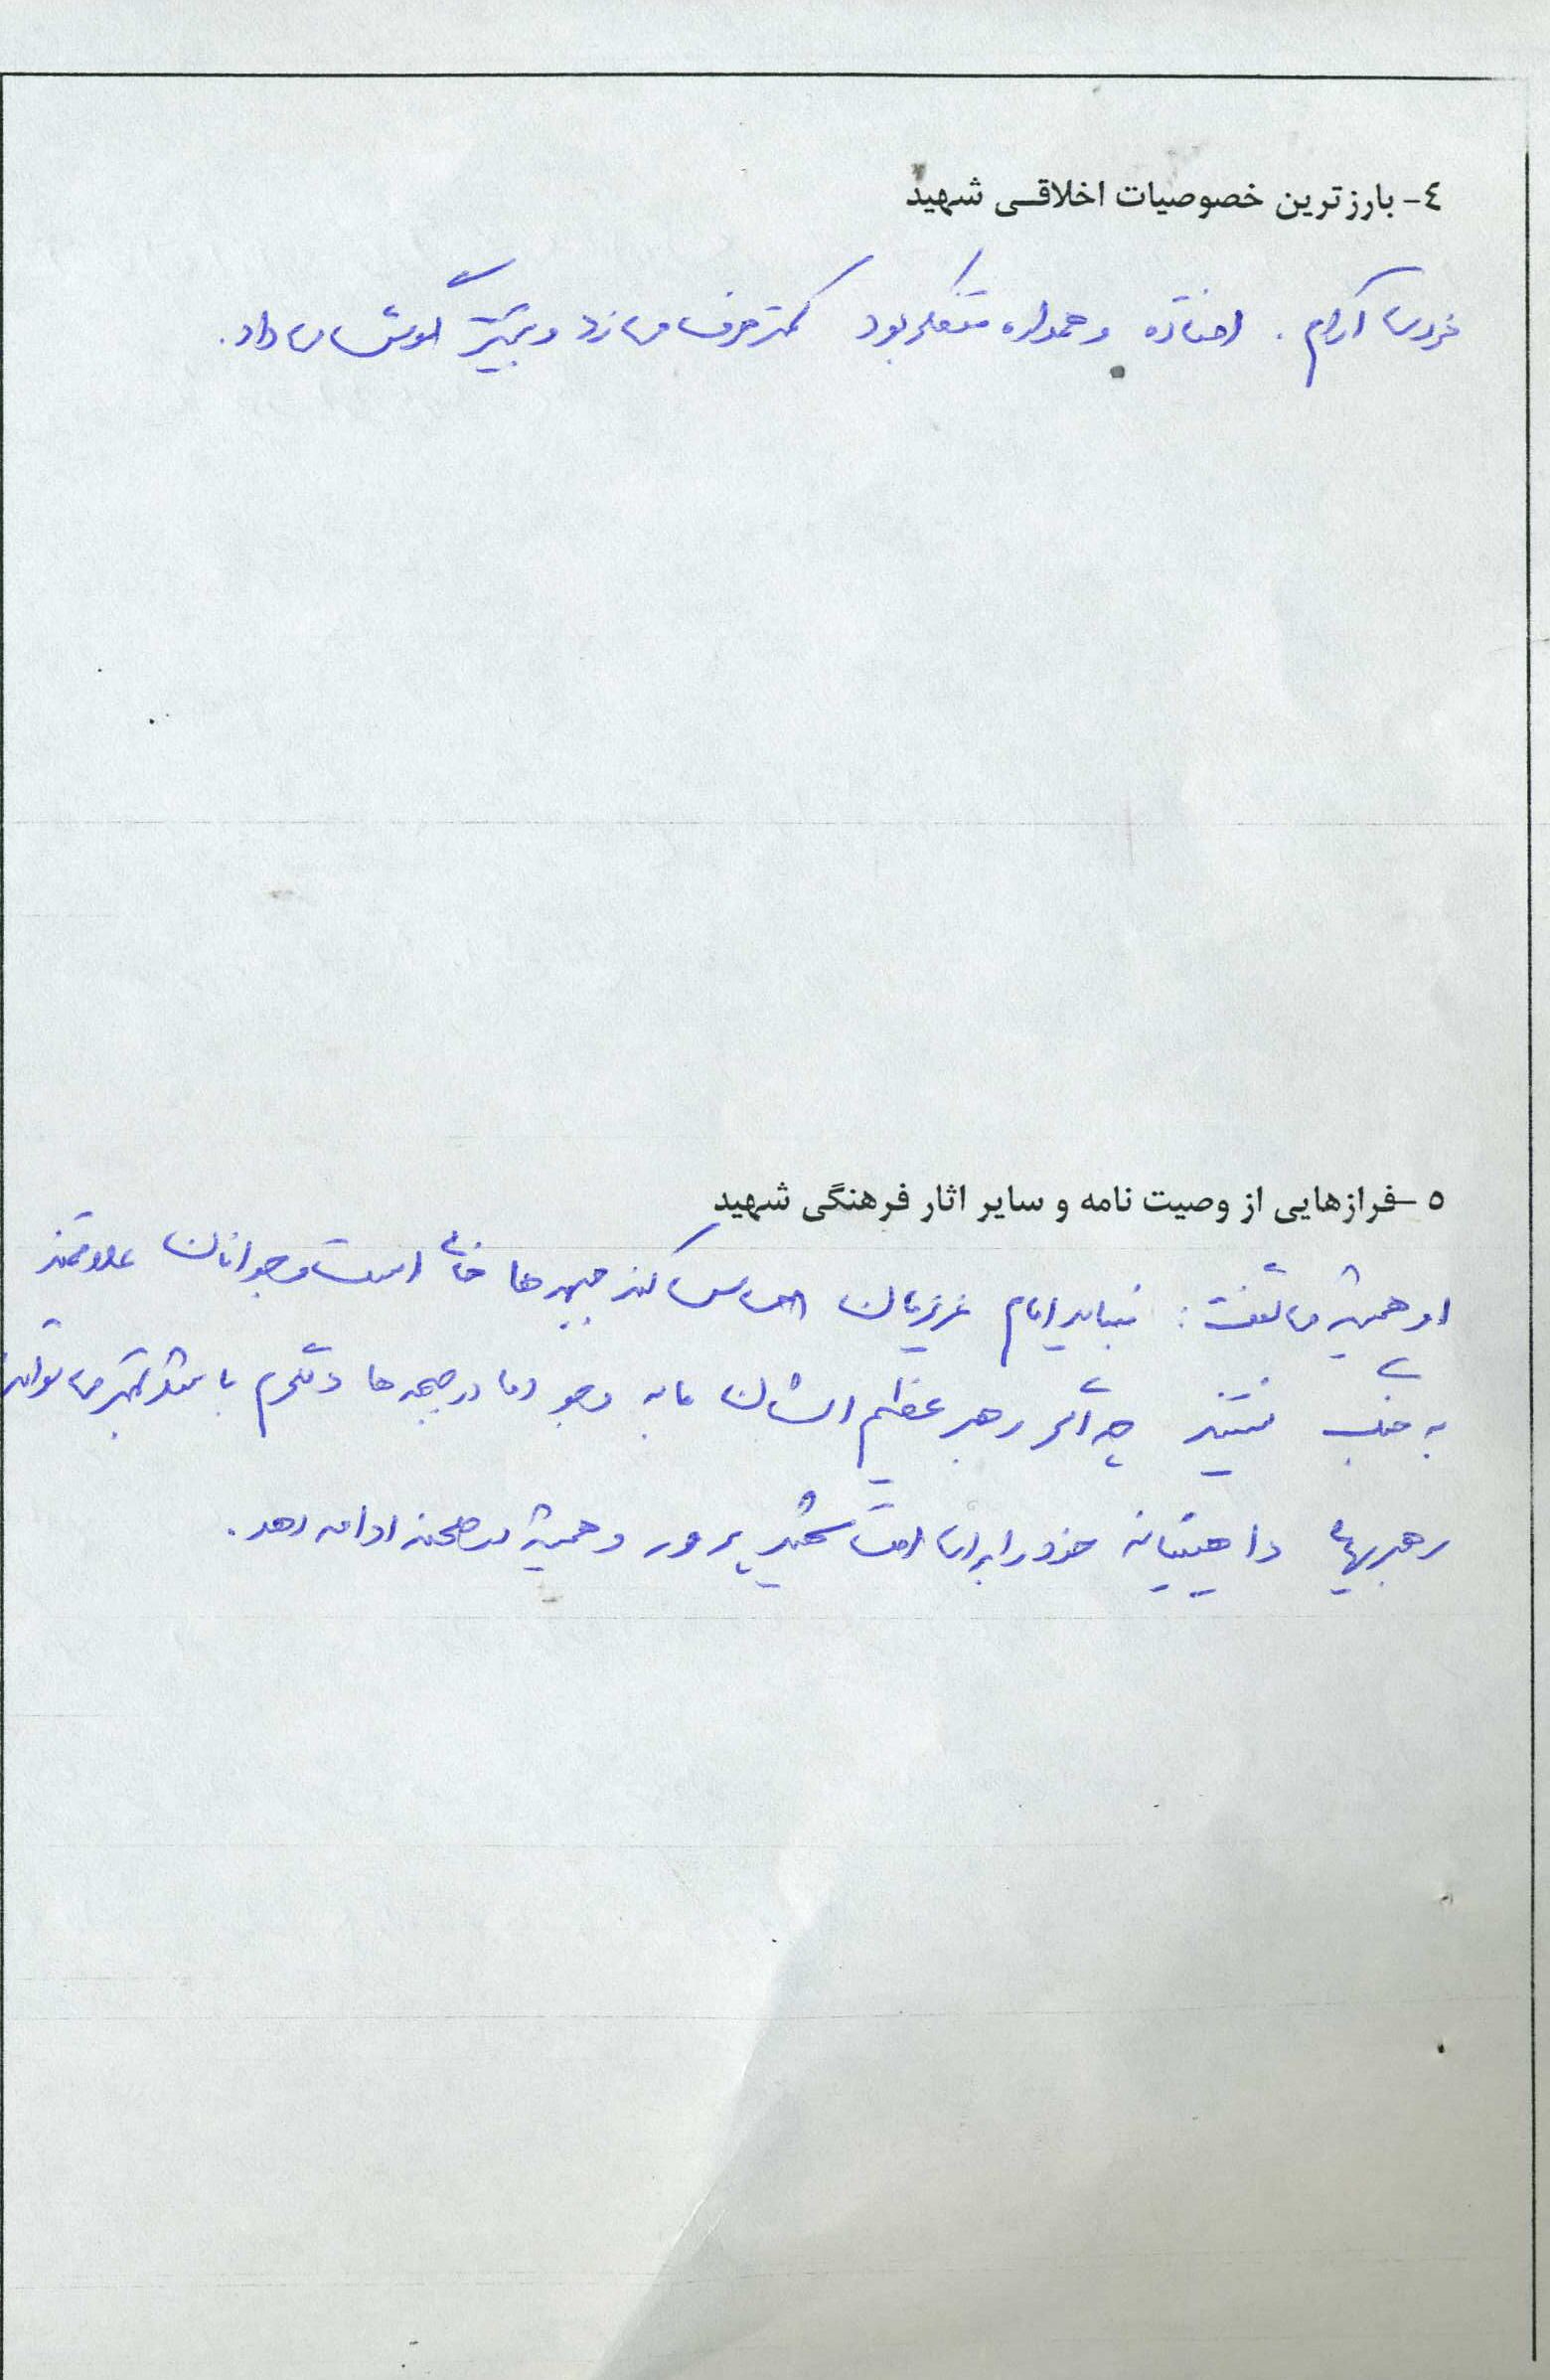 ٤- بارزترین خصوصیات اخلاقی شهید
فردی آرام . افتاده و همواره متفکر بود کمتر حرف می زد و بیشتر گوش می داد.
٥- فرازهایی از وصیت نامه و سایر اثار فرهنگی شهید
او همیشه می گفت : نباید امام عزیزمان احساس کند جبهه ها خالی است و جوانان علاقمند
به جنگ نیستند چه اگر رهبر عظیم الشان ما به وجود ما در جبهه ها دلگرم باشد بهتر می تواند
رهبریهای داهیانه خود را برای امت شهید پرور و همیشه در صحنه ادامه دهد.